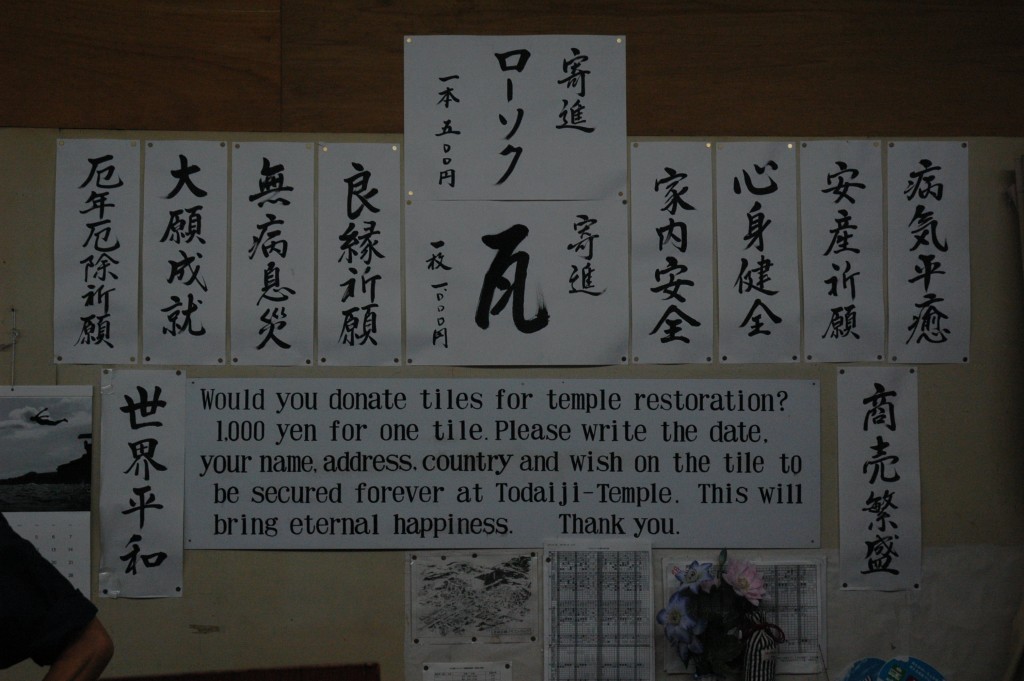 寄進
ローソク
一本 五〇〇円
寄進
瓦
一枚 一〇〇〇円
病気平癒
安産祈願
心身健全
家内安全
良縁祈願
無病息災
大願成就
厄年厄除祈願
商売繁盛
世界平和
Would you donate tiles for temple restoration?
1,000 yen for one tile. Please write the date,
your name, address, country and wish on the tile to
be secured forever at Todaiji-Temple. This will
bring eternal happiness. Thank you.